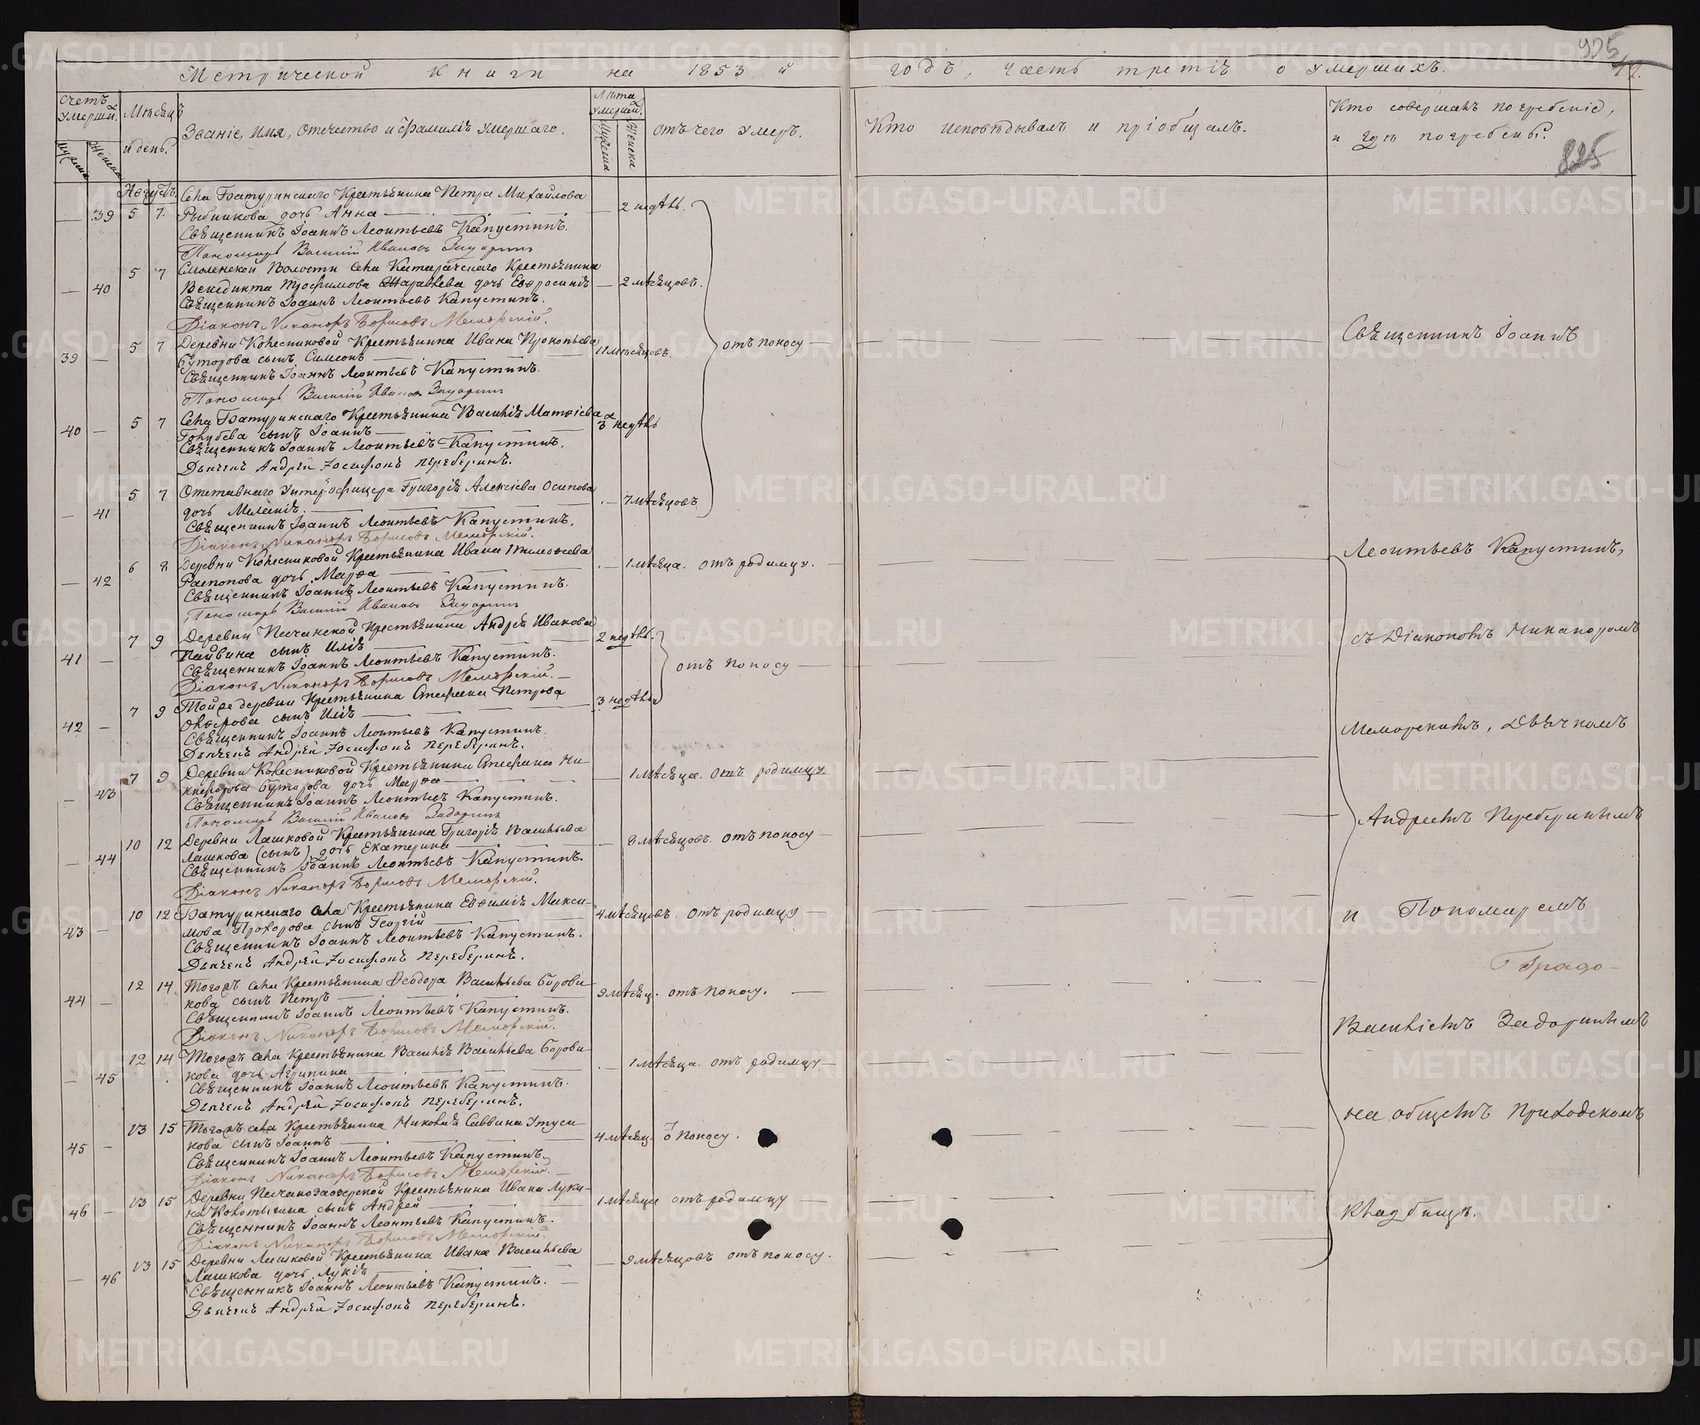 Метрической книги на 1853 й
годъ, часть третія о умершихъ.
925
825
Счетъ умерши.
Мѣсяцъ и день.
Званіе, имя, отечество и фамилія умершаго.
Лѣта умерши.
Отъ чего умеръ.
Кто исповѣдывалъ и пріобщалъ.
Кто совершалъ погребеніе,
и гдѣ погребены.
Августъ.
Села Батуринскаго Крестьянина Петра Михайлова
— 39 5 7 Рыбникова дочь Анна — 2 недѣль.
Священникъ Іоаннъ Леонтьевъ Капустинъ.
Пономарь Василій Ивановъ Задоринъ
5 7 Смоленской Волости села Катарачскаго Крестьянина
— 40 Венедикта Трофимова дочь Евфросинія — 2 мѣсяцовъ.
Священникъ Іоаннъ Леонтьевъ Капустинъ.
Діаконъ Никаноръ Борисовъ Меморскій.
5 7 Деревни Колесниковой Крестьянина Ивана Прокопьева
39 — Буторова сынъ Симеонъ — 11 мѣсяцовъ. отъ поносу —
Священникъ Іоаннъ Леонтьевъ Капустинъ.
Пономарь Василій Ивановъ Задоринъ
5 7 Села Батуринскаго Крестьянина Василія Матвіева
40 — Голубева сынъ Іоаннъ — 3 недѣль
Священникъ Іоаннъ Леонтьевъ Капустинъ.
Дьячекъ Андрей Іосифовъ Переберинъ.
5 7 Отставнаго Унтеръ-офицера Григорія Алексіева Осипова
— 41 дочь Меланія. — 7 мѣсяцовъ
Священникъ Іоаннъ Леонтьевъ Капустинъ.
Діаконъ Никаноръ Борисовъ Меморскій.
6 8 Деревни Колесниковой Крестьянина Ивана Тимофеева
— 42 Распопова дочь Марѳа — 1 мѣсяца. отъ родимцу.
Священникъ Іоаннъ Леонтьевъ Капустинъ.
Пономарь Василій Ивановъ Задоринъ
7 9 Деревни Песчанской Крестьянина Андрея Иванова
41 — Пайвина сынъ Илія — 2 недѣль.
Священникъ Іоаннъ Леонтьевъ Капустинъ.
Діаконъ Никаноръ Борисовъ Меморскій.
отъ поносу —
7 9 Тойже деревни Крестьянина Стефана Петрова
42 — сынъ Илія — 3 недѣль
Священникъ Іоаннъ Леонтьевъ Капустинъ.
Дьячекъ Андрей Іосифовъ Переберинъ.
7 9 Деревни Колесниковой Крестьянина Стефана Ни-
— 43 кифорова Буторова дочь Марѳа — 1 мѣсяца. отъ родимцу
Священникъ Іоаннъ Леонтьевъ Капустинъ.
Пономарь Василій Ивановъ Задоринъ
10 12 Деревни Лашковой Крестьянина Григорія Васильева
— 44 Лашкова (сынъ) дочь Екатерина — 8 мѣсяцовъ. отъ поносу —
Священникъ Іоаннъ Леонтьевъ Капустинъ.
Діаконъ Никаноръ Борисовъ Меморскій.
10 12 Батуринскаго села Крестьянина Евѳимія Макси-
43 — мова Прохорова сынъ Георгій — 4 мѣсяцовъ. отъ родимцу
Священникъ Іоаннъ Леонтьевъ Капустинъ.
Дьячекъ Андрей Іосифовъ Переберинъ.
12 14 Тогожъ села Крестьянина Ѳеодора Васильева Борови-
44 — кова сынъ Петръ — 9 мѣсяц. отъ поносу. —
Священникъ Іоаннъ Леонтьевъ Капустинъ.
Діаконъ Никаноръ Борисовъ Меморскій.
12 14 Тогожъ села Крестьянина Василія Васильева Борови-
— 45 кова дочь Агрипина — 1 мѣсяца. отъ родимцу —
Священникъ Іоаннъ Леонтьевъ Капустинъ.
Дьячекъ Андрей Іосифовъ Переберинъ.
13 15 Тогожъ села Крестьянина Николая Саввина
45 — сынъ Іоаннъ — 4 мѣсяц. ѿ поносу.
Священникъ Іоаннъ Леонтьевъ Капустинъ.
Діаконъ Никаноръ Борисовъ Меморскій.
13 15 Деревни Песчаноозерской Крестьянина Ивана Луки-
46 — на Колотыгина сынъ Андрей — 1 мѣсяца отъ родимцу —
Священникъ Іоаннъ Леонтьевъ Капустинъ.
Діаконъ Никаноръ Борисовъ Меморскій.
13 15 Деревни Лашковой Крестьянина Ивана Васильева
— 46 Лашкова дочь Лукія — 9 мѣсяцовъ отъ поносу.
Священникъ Іоаннъ Леонтьевъ Капустинъ. —
Дьячекъ Андрей Іосифовъ Переберинъ.
Священникъ Іоаннъ
Леонтьевъ Капустинъ,
съ Діакономъ Никаноромъ
Меморскимъ, Дьячкомъ
Андреемъ Переберинымъ
и Пономаремъ
Василіемъ Задоринымъ
на общемъ приходскомъ
кладбищѣ.
METRIKI.GASO-URAL.RU